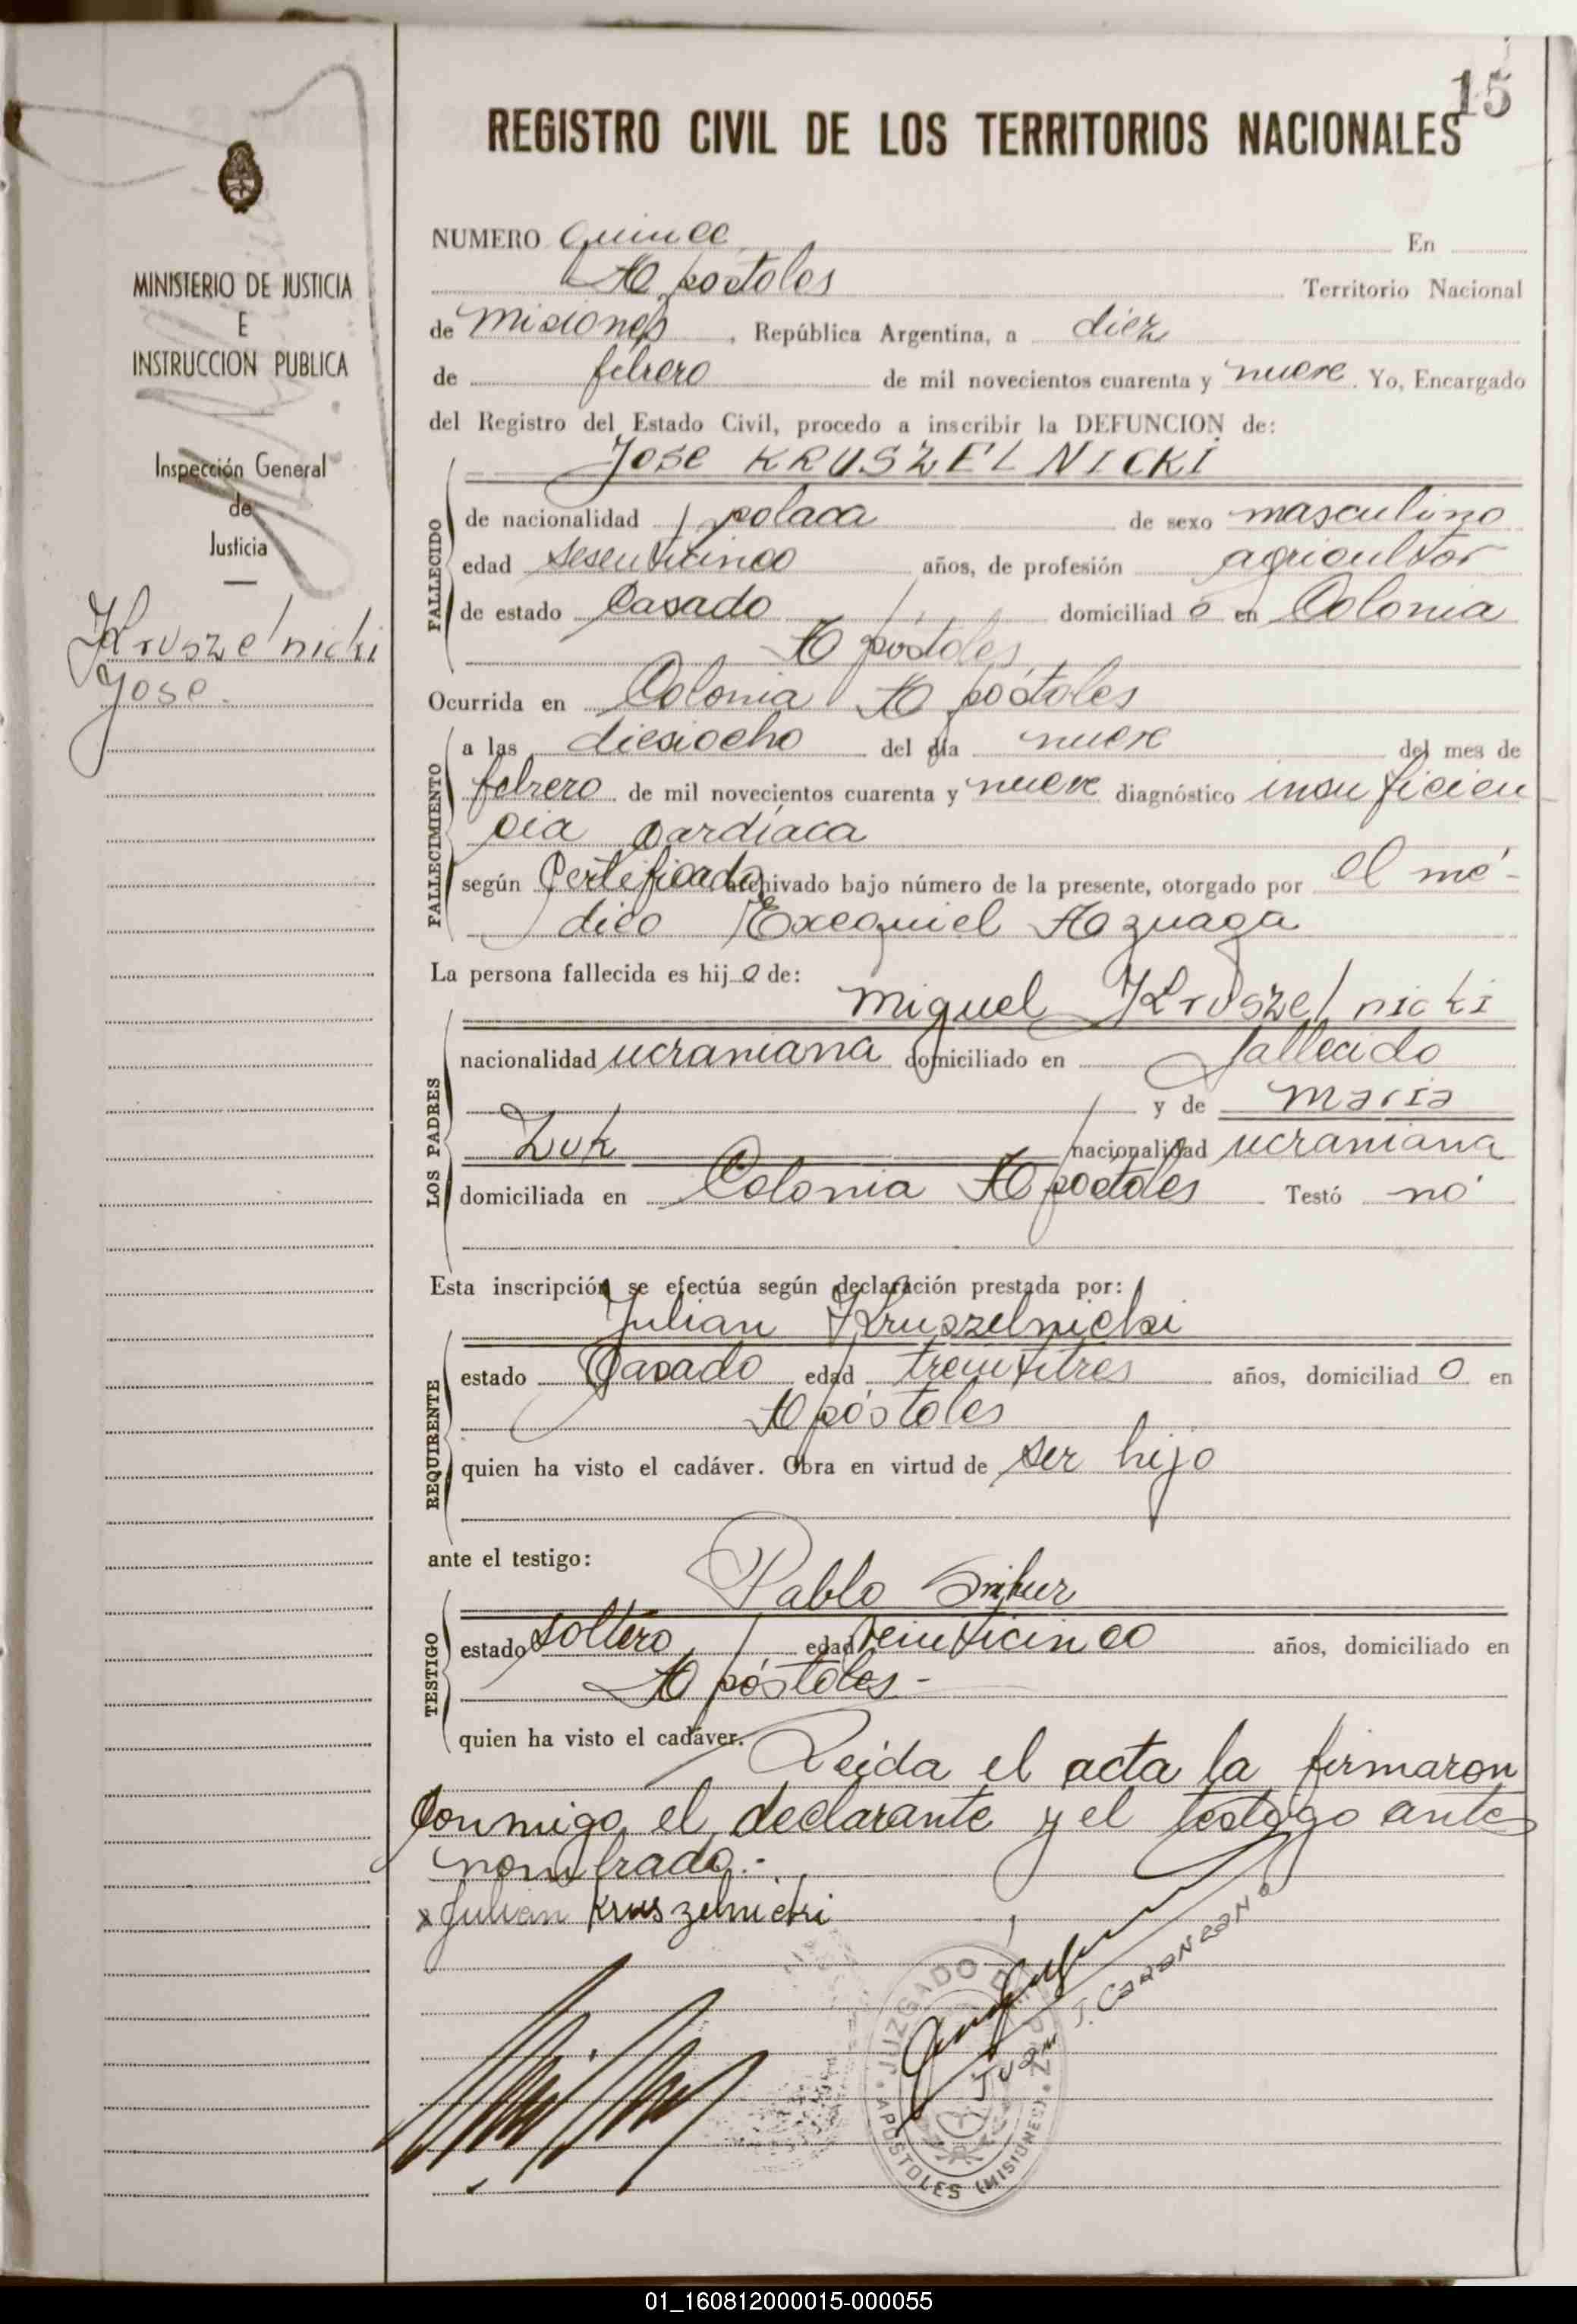 15
REGISTRO CIVIL DE LOS TERRITORIOS NACIONALES
MINISTERIO DE JUSTICIA
E
INSTRUCCION PUBLICA
Inspección General
de
Justicia
Kruszelnicki
Jose.
NUMERO quince En
Apostoles Territorio Nacional
de Misiones, República Argentina, a diez
de febrero de mil novecientos cuarenta y nueve. Yo, Encargado
del Registro del Estado Civil, procedo a inscribir la DEFUNCION de:
JOSE KRUSZELNICKI
FALLECIDO
de nacionalidad polaca de sexo masculino
edad sesenticinco años, de profesión agricultor
de estado Casado domiciliado en Colonia
Apóstoles
Ocurrida en Colonia Apóstoles
FALLECIMIENTO
a las diesiocho del día nueve del mes de
febrero de mil novecientos cuarenta y nueve diagnóstico insuficien
cia cardíaca
según Certificado archivado bajo número de la presente, otorgado por el mé-
dico Exequiel Azuaga
La persona fallecida es hijo de:
LOS PADRES
Miguel Kruszelnicki
nacionalidad ucraniana domiciliado en fallecido
y de Maria
Zuk nacionalidad ucraniana
domiciliada en Colonia Apostoles Testó no
Esta inscripción se efectúa según declaración prestada por:
REQUIRENTE
Julian Kruszelnicki
estado Casado edad trentitres años, domiciliado en
Apóstoles
quien ha visto el cadáver. Obra en virtud de ser hijo
ante el testigo:
TESTIGO
Pablo
estado soltero edad veinticinco años, domiciliado en
Apóstoles-
quien ha visto el cadáver. Leida el acta la firmaron
conmigo el declarante y el testigo antes
nombrado.-
x Julian Kruszelnicki
JUZGADO DE PAZ
APOSTOLES (MISIONES)
01_160812000015-000055